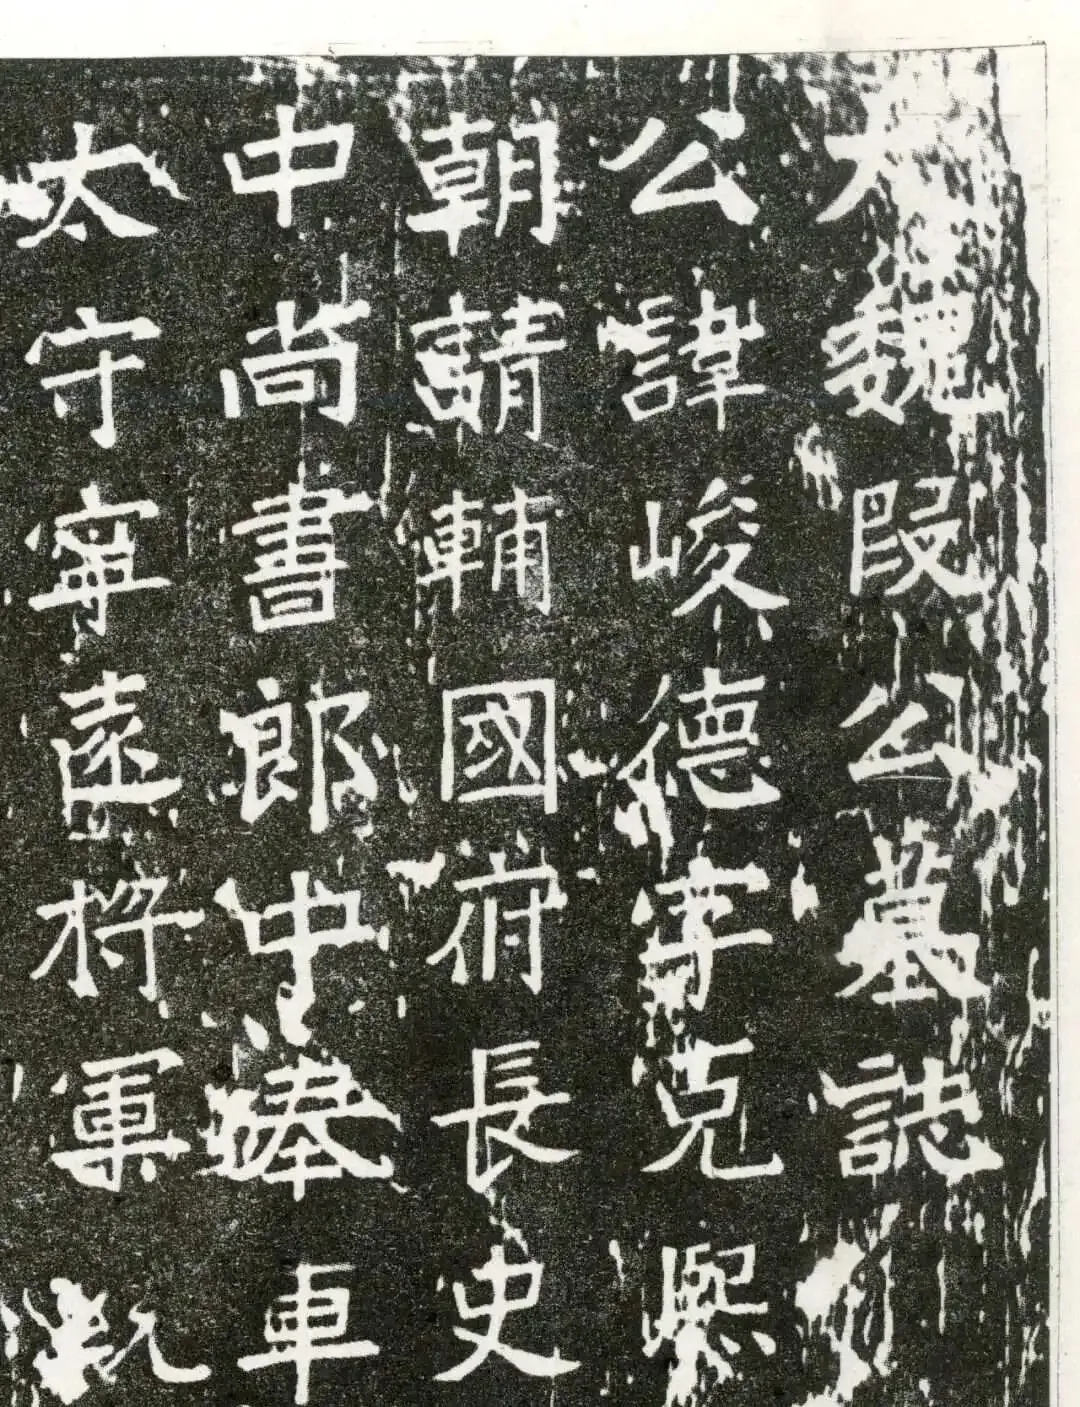 大魏段公墓誌
公諱峻德字克熙
朝請輔國府長史
中尚書郎中奉車
太守寧遠將軍